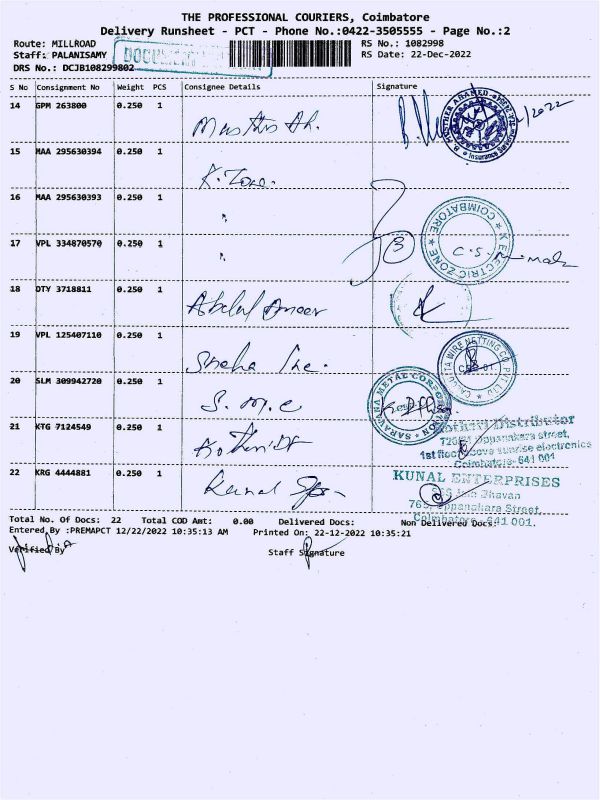 THE PROFESSIONAL COURIERS, Coimbatore
Delivery Runsheet - PCT - Phone No.:0422-3505555 - Page No.:2
Route: MILLROAD
RS No.: 1082998
Staff: PALANISAMY
RS Date: 22-Dec-2022
DRS No.: DCJB108299802
DOCUMENT
S No Consignment No Weight PCS Consignee Details Signature
14 GPM 263800 0.250 1
15 MAA 295630394 0.250 1
K. Zone.
16 MAA 295630393 0.250 1
"
COIMBATORE
K ELECTRIC ZONE
17 VPL 334870570 0.250 1
"
3
C.S.
18 DTY 3718811 0.250 1
Abdul Ameer
19 VPL 125407110 0.250 1
Sneha Inc.
CALCUTTA WIRE NETTING CO. PVT. LTD.
20 SLM 309942720 0.250 1
S. M. C
SARAVANA METAL CORPORATION
21 KTG 7124549 0.250 1
Kothari Dt
Kothari Distributor
Oppanakara street,
1st floor above sunrise electronics
Coimbatore-641 001
22 KRG 4444881 0.250 1
Kunal
KUNAL ENTERPRISES
Bhavan
Oppanakara Street,
Coimbatore - 641 001.
Total No. Of Docs: 22 Total COD Amt: 0.00 Delivered Docs: Non Delivered Docs:
Entered By :PREMAPCT 12/22/2022 10:35:13 AM Printed On: 22-12-2022 10:35:21
Verified By
Staff Signature